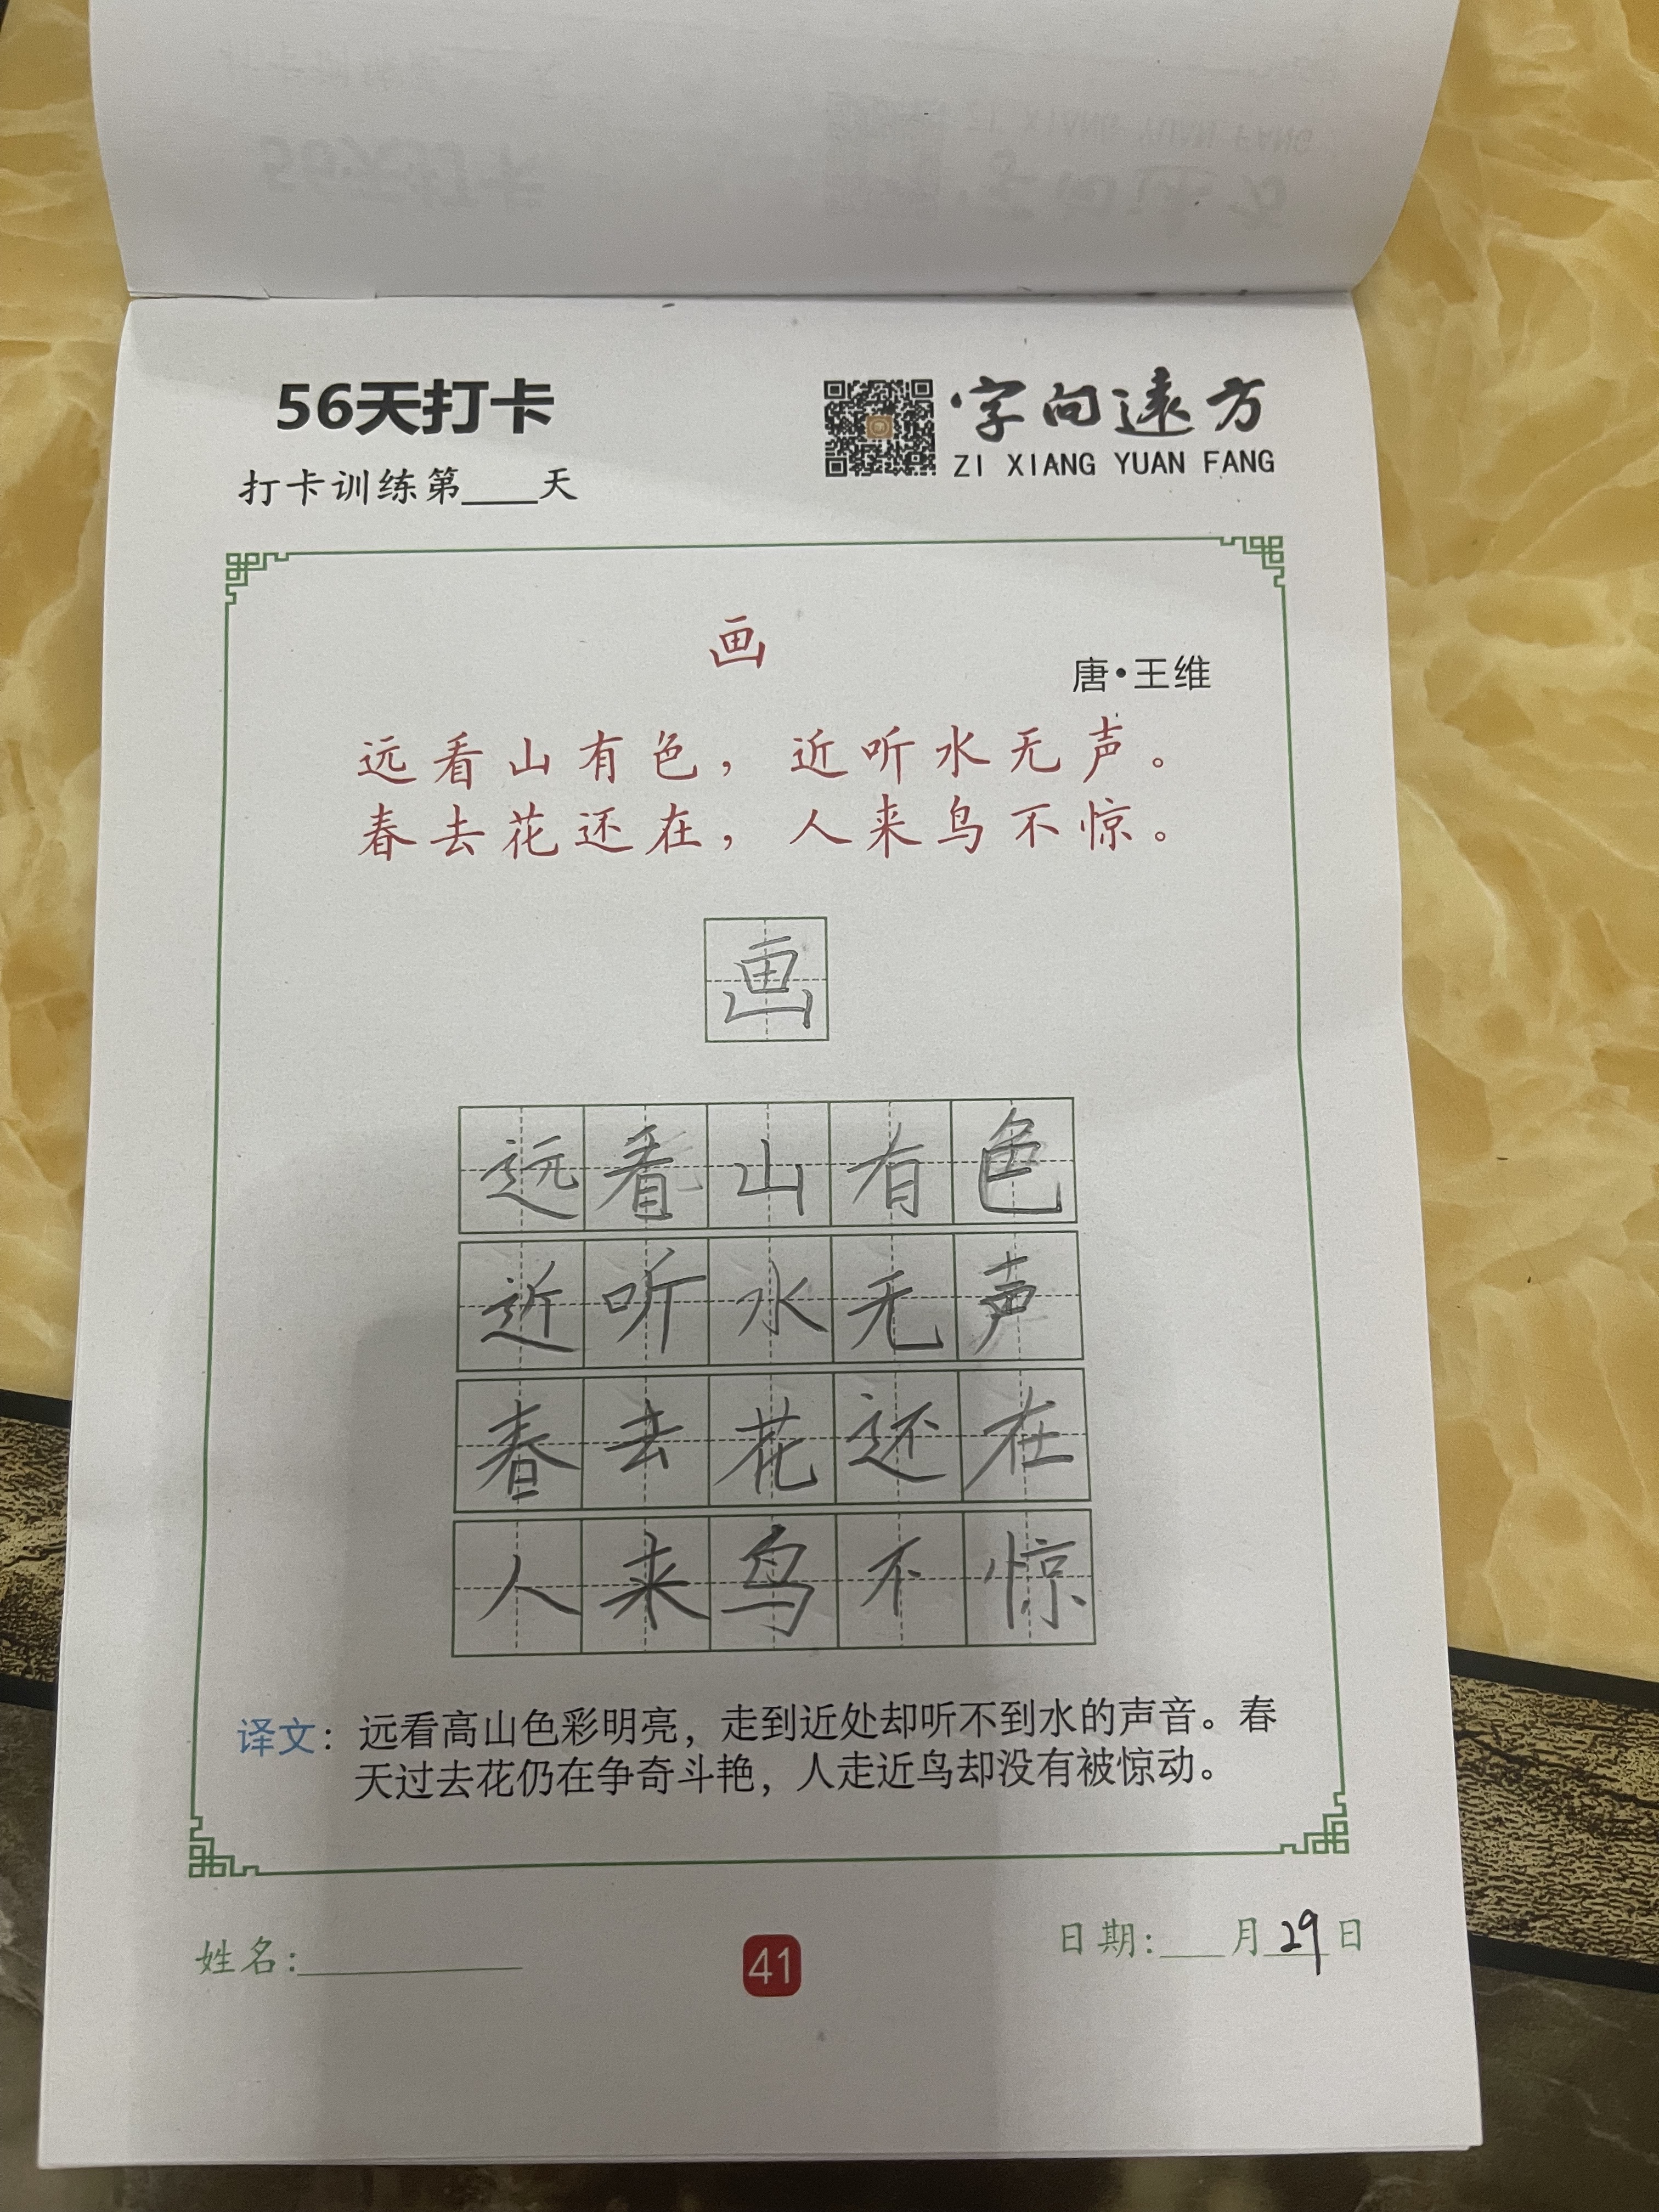 56天打卡
打卡训练第____天
字向远方
ZI XIANG YUAN FANG
画
唐·王维
远看山有色，近听水无声。
春去花还在，人来鸟不惊。
画
远看山有色
近听水无声
春去花还在
人来鸟不惊
译文：远看高山色彩明亮，走到近处却听不到水的声音。春
天过去花仍在争奇斗艳，人走近鸟却没有被惊动。
姓名:__________
41
日期:___月29日